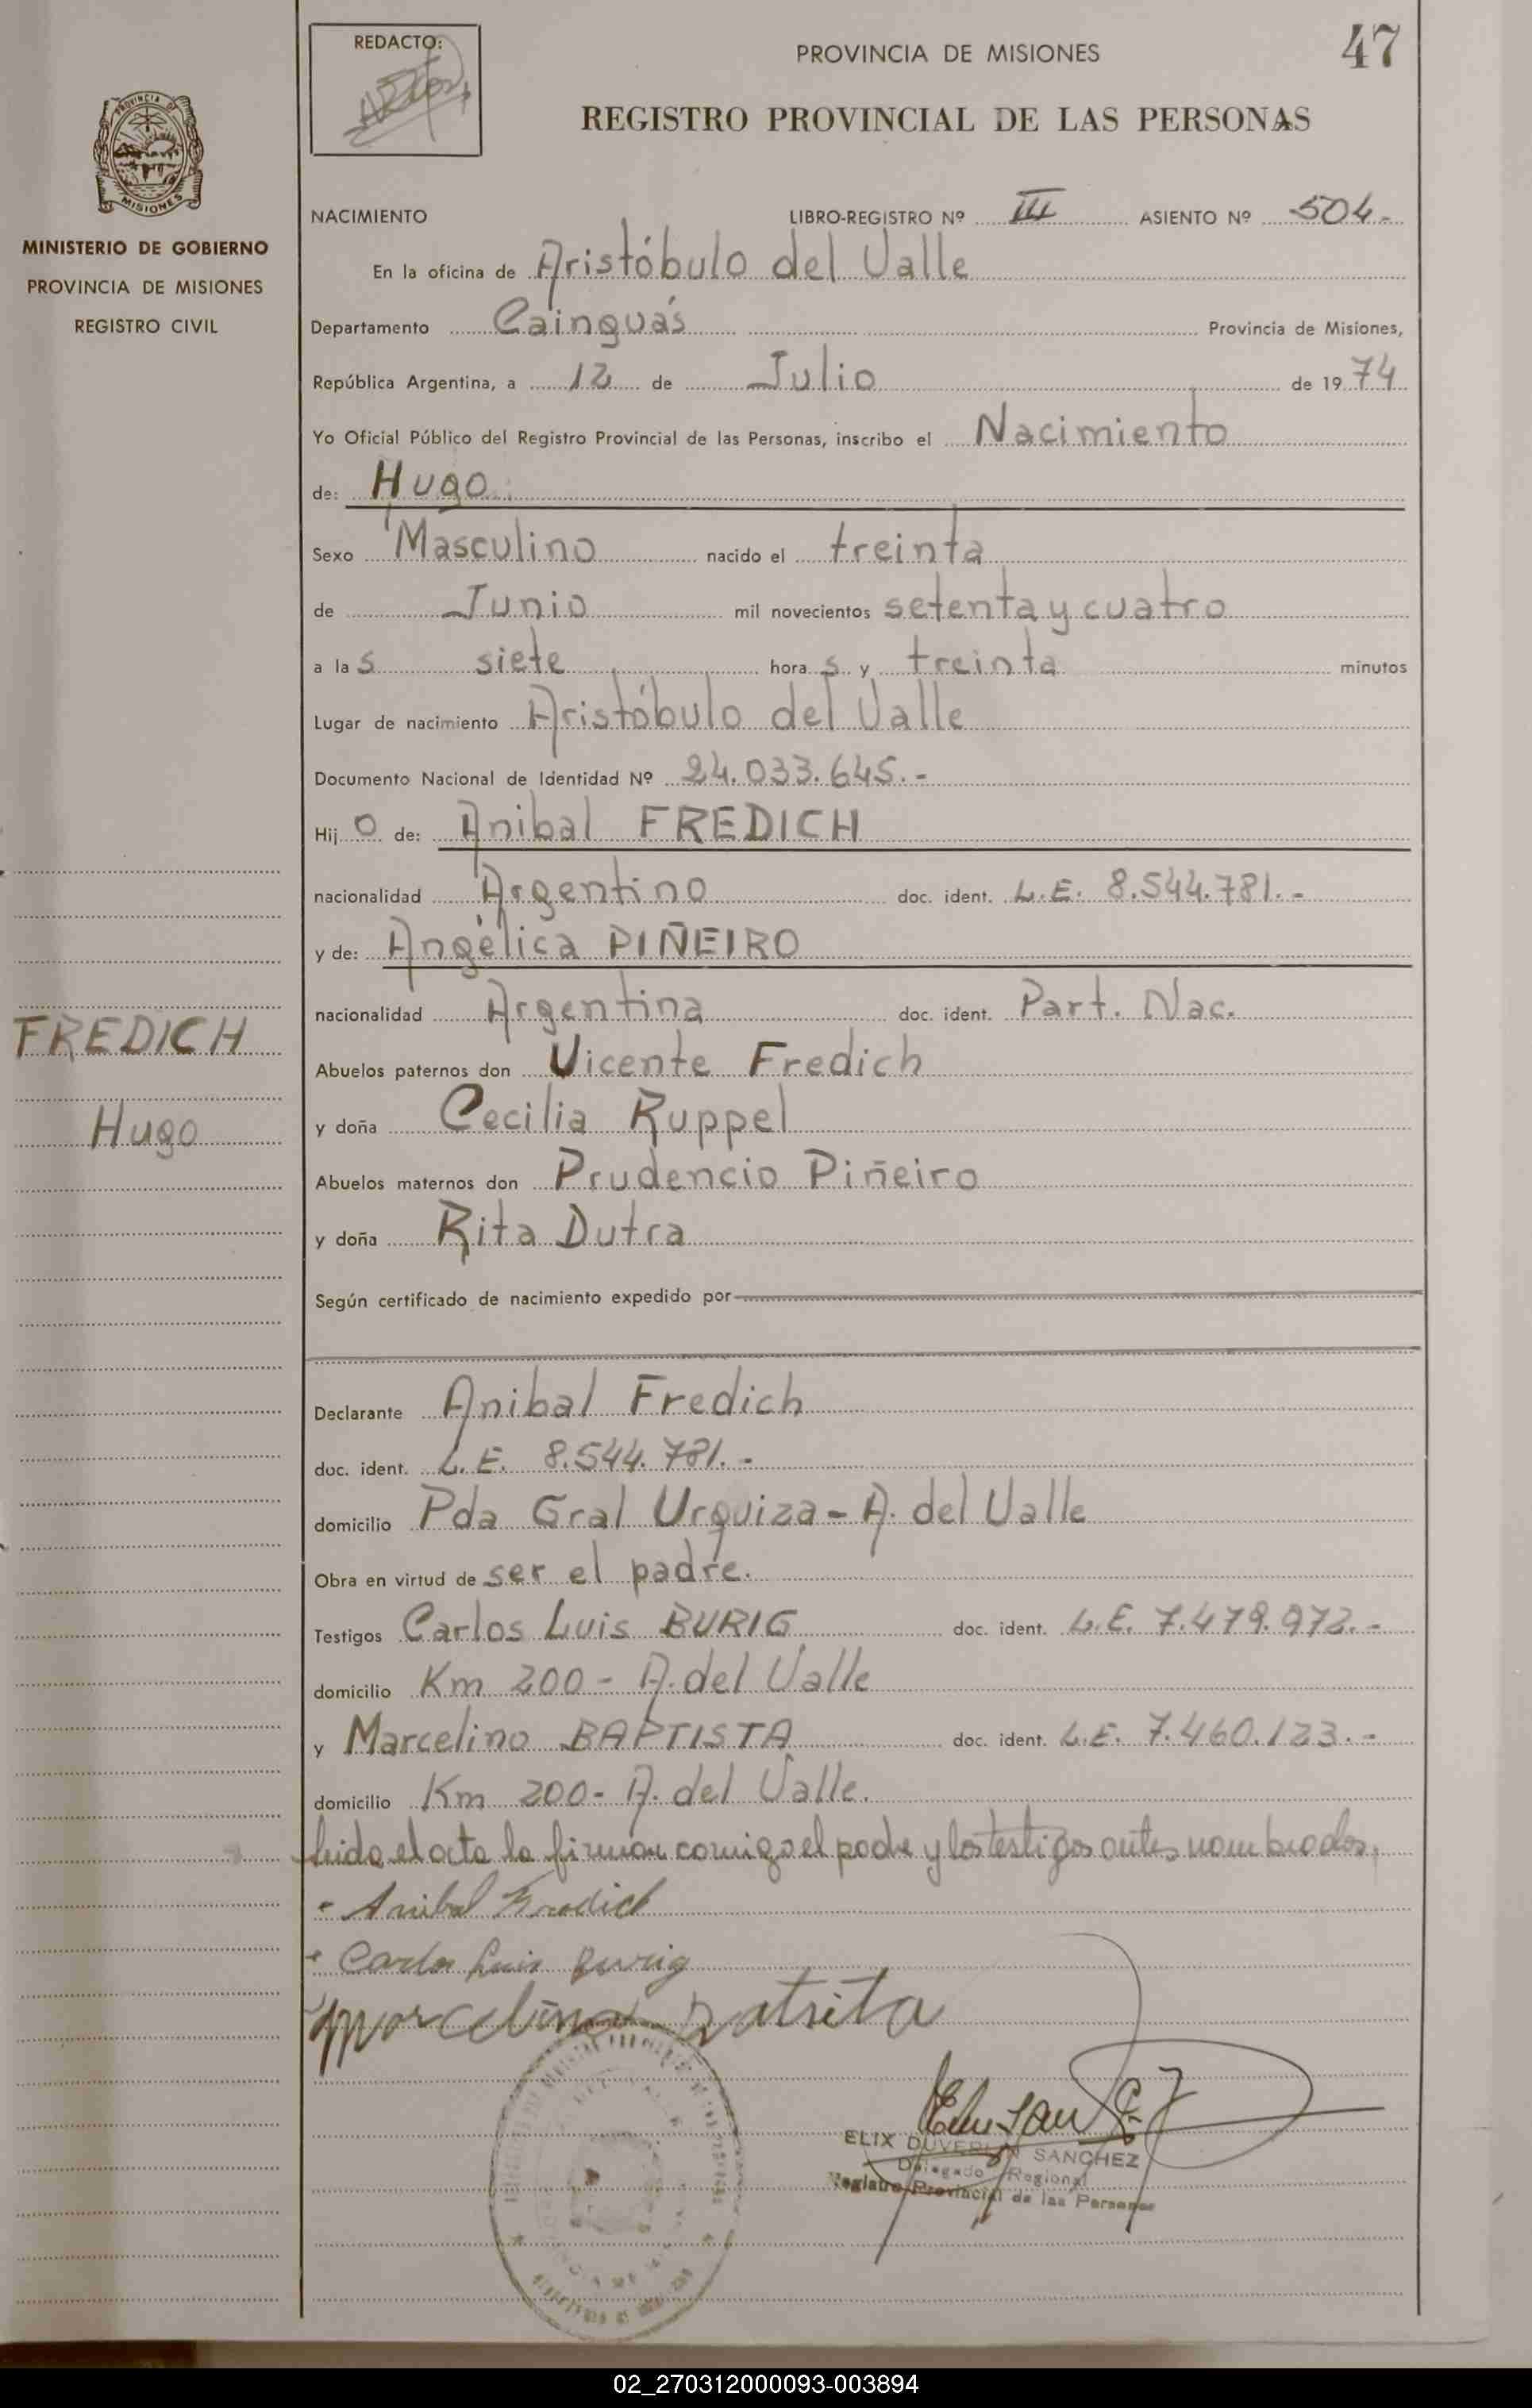 47
REDACTO:
PROVINCIA DE MISIONES
REGISTRO PROVINCIAL DE LAS PERSONAS
PROVINCIA DE
MISIONES
MINISTERIO DE GOBIERNO
PROVINCIA DE MISIONES
REGISTRO CIVIL
NACIMIENTO LIBRO-REGISTRO Nº III ASIENTO Nº 504.-
En la oficina de Aristóbulo del Valle
Departamento Cainguás Provincia de Misiones,
República Argentina, a 12 de Julio de 1974
Yo Oficial Público del Registro Provincial de las Personas, inscribo el Nacimiento
de: Hugo
Sexo Masculino nacido el treinta
de Junio mil novecientos setenta y cuatro
a las siete horas y treinta minutos
Lugar de nacimiento Aristóbulo del Valle
Documento Nacional de Identidad Nº 24.033.645.-
Hijo de: Anibal FREDICH
nacionalidad Argentino doc. ident. L.E. 8.544.781.-
y de: Angélica PIÑEIRO
nacionalidad Argentina doc. ident. Part. Nac.
FREDICH
Hugo
Abuelos paternos don Vicente Fredich
y doña Cecilia Ruppel
Abuelos maternos don Prudencio Piñeiro
y doña Rita Dutra
Según certificado de nacimiento expedido por
Declarante Anibal Fredich
doc. ident. L.E. 8.544.781.-
domicilio Pda Gral Urquiza - A. del Valle
Obra en virtud de ser el padre.
Testigos Carlos Luis BURIG doc. ident. L.E. 7.479.972.-
domicilio Km 200 - A. del Valle
y Marcelino BAPTISTA doc. ident. L.E. 7.460.123.-
domicilio Km 200 - A. del Valle.
Leida el acta la firman comigo el padre y los testigos antes nombrados,
Anibal Fredich
Carlos Luis Burig
Marcelino Batsita
ELIX DUVERLIN SANCHEZ
Delegado Regional
Registro Provincial de las Personas
02_270312000093-003894